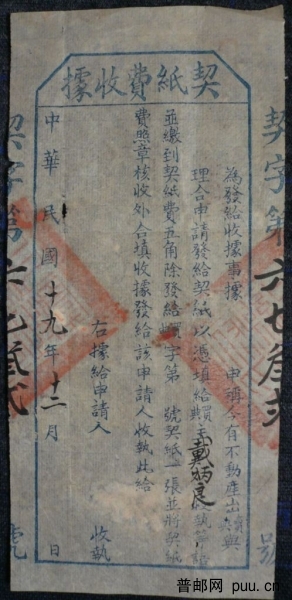 契紙費收據
為發給收據事據 申稱今有不動產出 與
理合申請發給契紙以憑填給買主戴炳良執管
並繳到契紙費五角除發給買字第 號契紙一張並將契紙
費照章核收外合填收據發給該申請人收執此給
右據給申請人 收執
中華民國十九年十二月 日
契字第六七叁 號
契字第六 號
普邮网 puu.cn